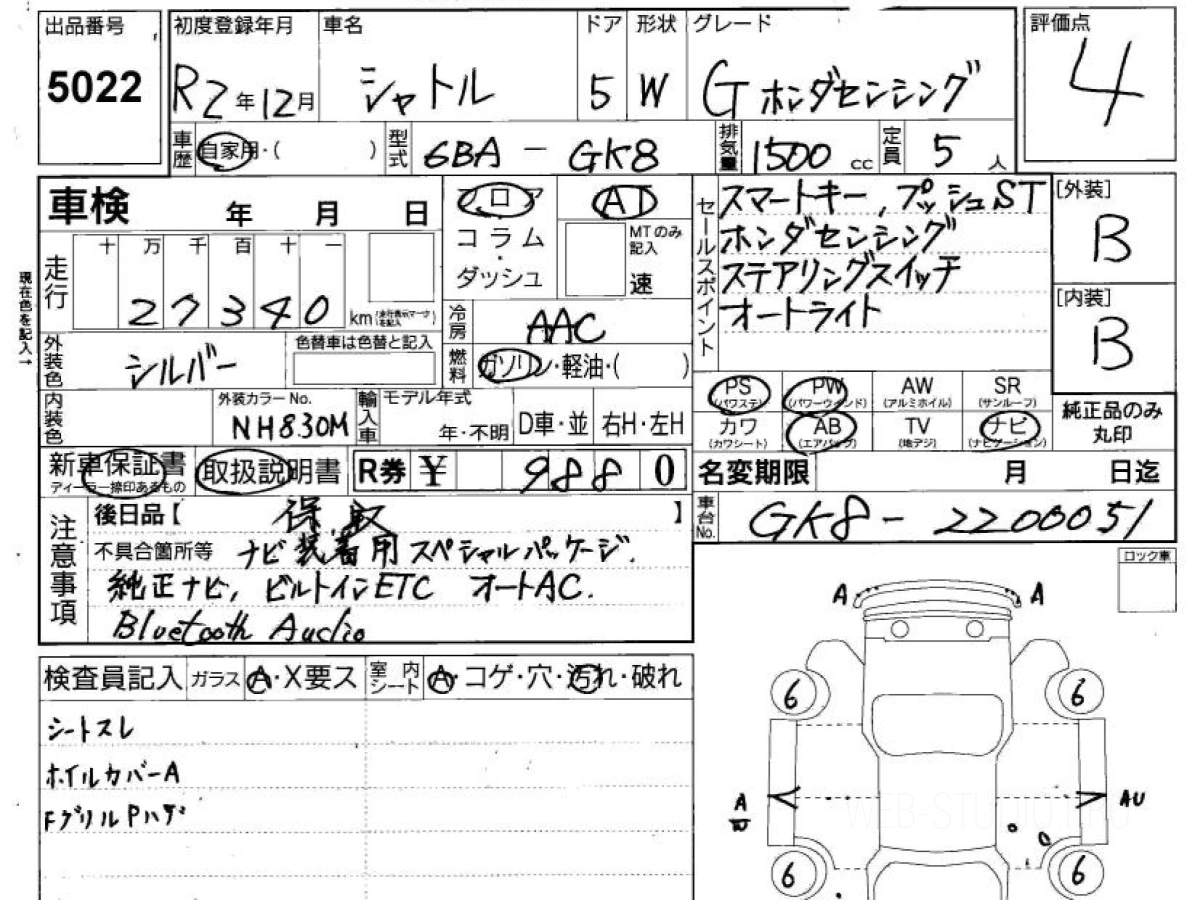 出品番号 5022
初度登録年月 R2年12月
車名 シャトル
ドア 5
形状 W
グレード G ホンダセンシング
評価点 4
車歴 自家用・( )
型式 6BA - GK8
排気量 1500 cc
定員 5人
車検 年 月 日
フロア
コラム
・
ダッシュ
AT
MTのみ記入
速
セールスポイント
スマートキー, プッシュST
ホンダセンシング
ステアリングスイッチ
オートライト
[外装]
B
[内装]
B
現在色を記入→
走行 十 万 千 百 十 一
27340 km
冷房 AAC
外装色 シルバー
色替車は色替と記入
燃料 ガソリン・軽油・( )
PS (パワステ) PW (パワーウィンド) AW (アルミホイル) SR (サンルーフ)
カワ (カワシート) AB (エアバッグ) TV (地デジ) ナビ (ナビゲーション)
純正品のみ丸印
内装色
外装カラーNo. NH830M
輸入車 モデル年式 年・不明 D車・並 右H・左H
新車保証書 ディーラー捺印あるもの
取扱説明書
R券 ¥ 9880
名変期限 月 日迄
車台No. GK8-2200051
注意事項
後日品【 保.取 】
不具合箇所等 ナビ装着用スペシャルパッケージ.
純正ナビ, ビルトインETC オートAC.
Bluetooth Audio
ロック車
検査員記入 ガラス A・X要ス 室内シート A・コゲ・穴・汚れ・破れ
シートスレ
ホイルカバーA
FグリルPハゲ
A A
6 6
A
W
AU
6 6